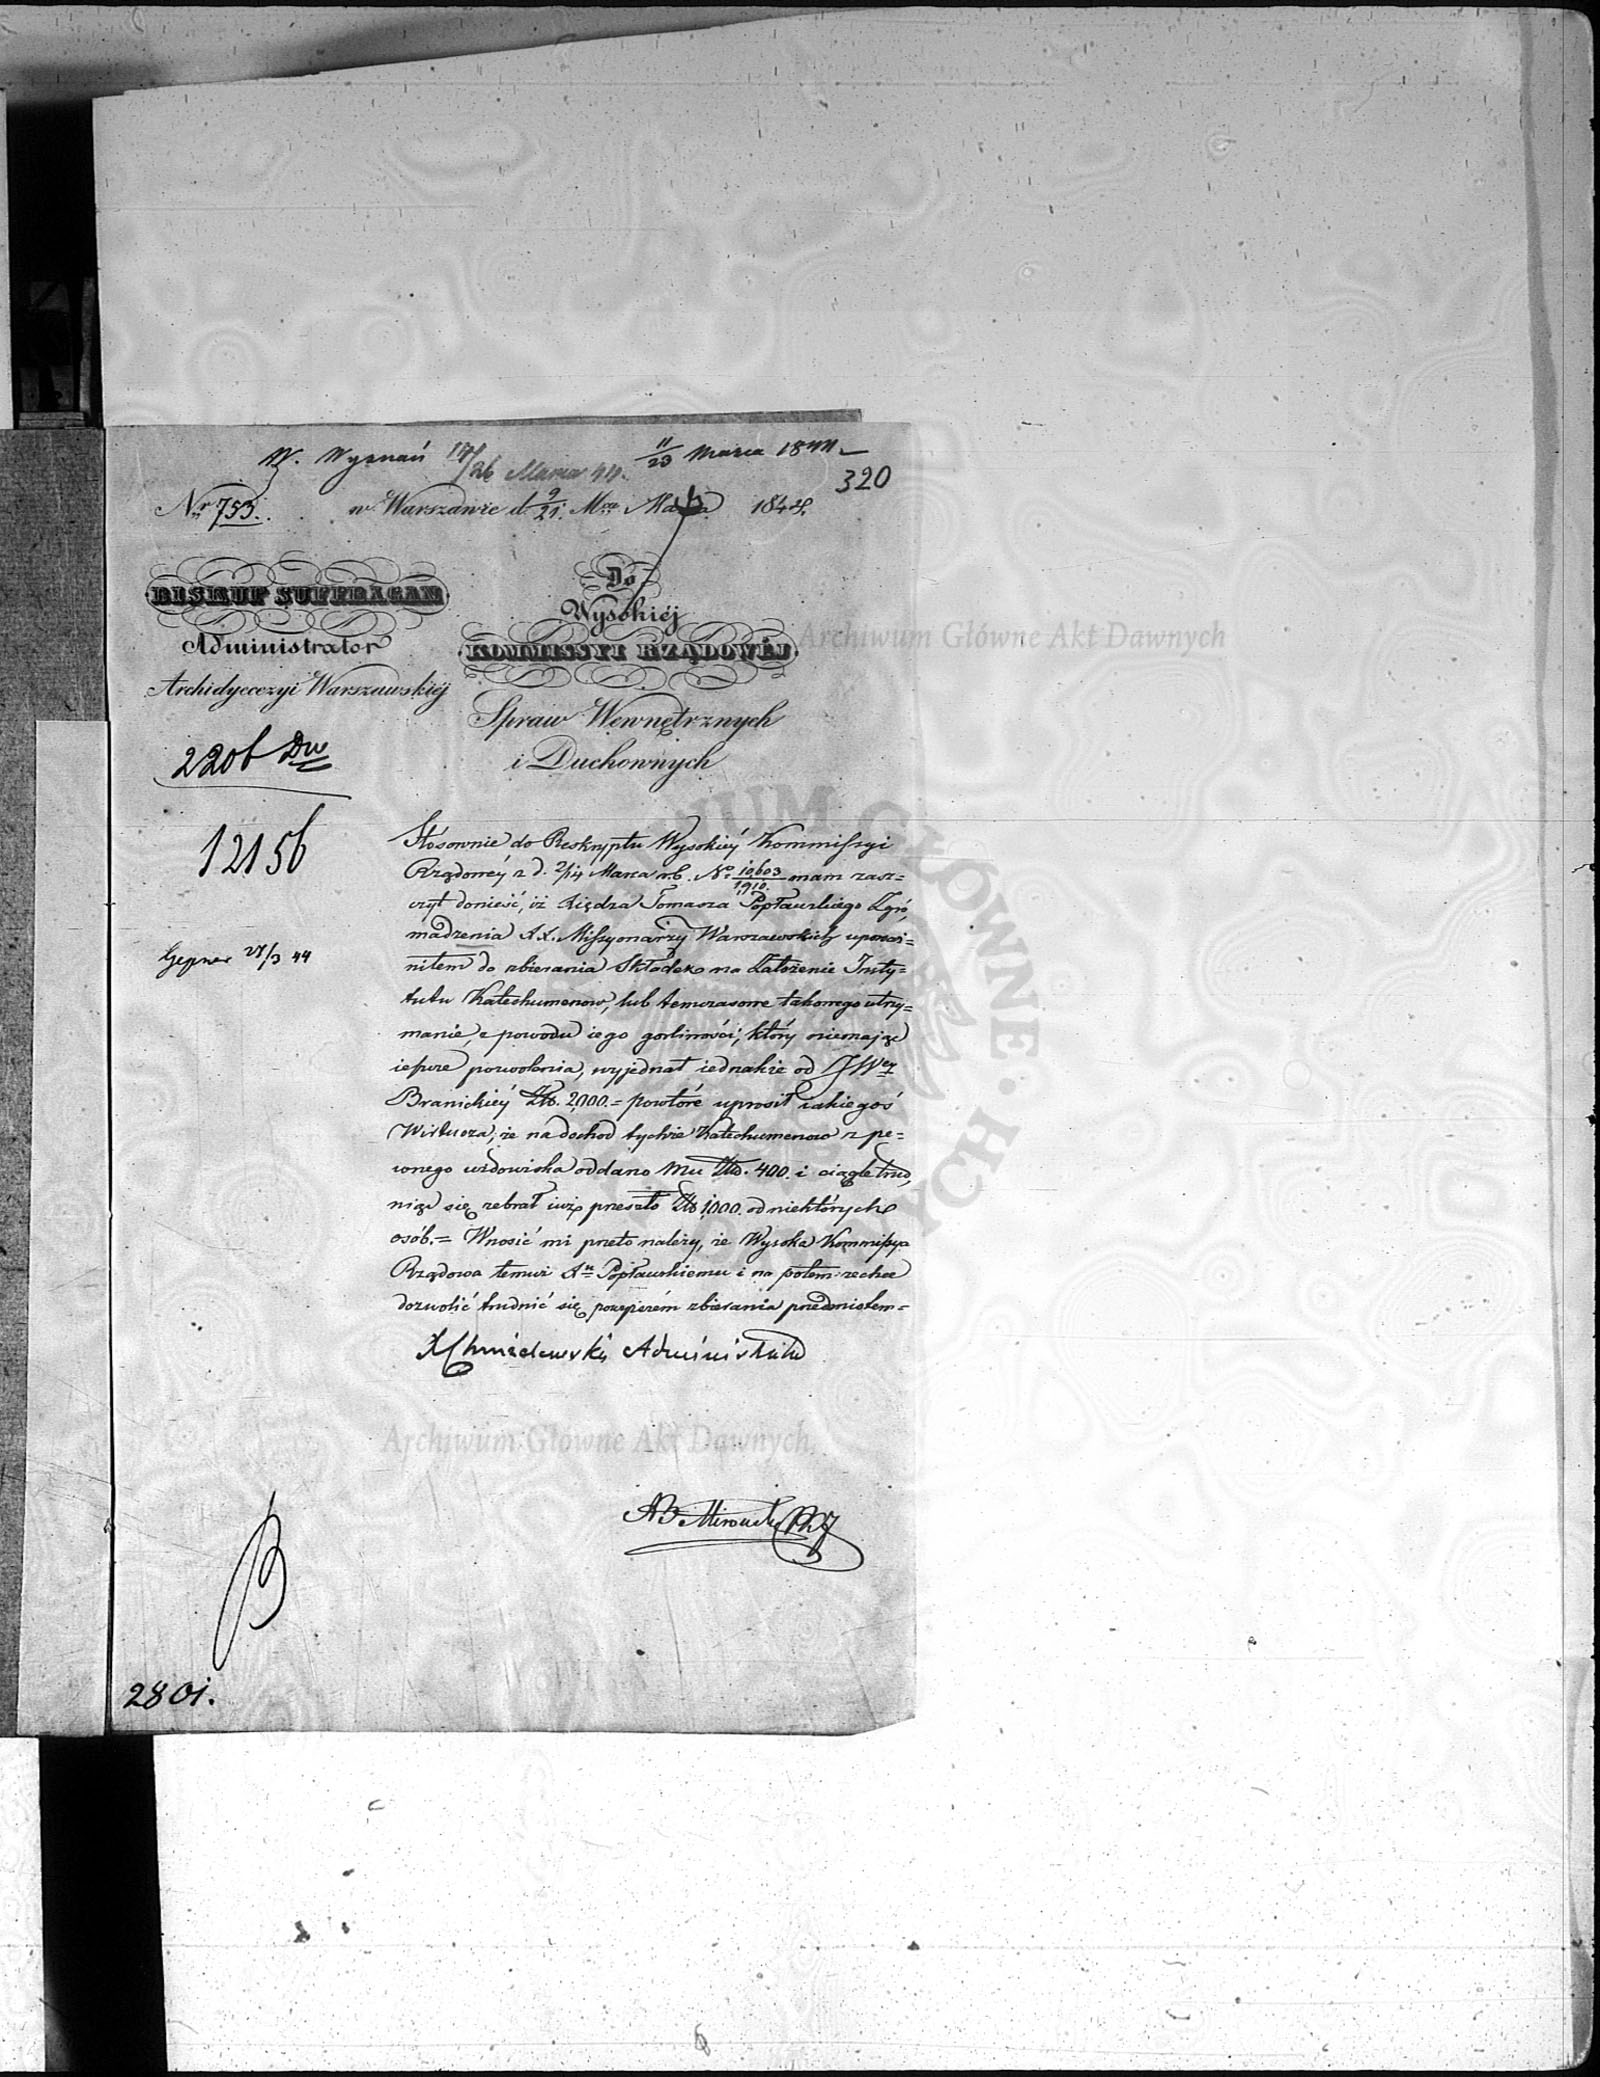 W. Wyznań 14/26 Marca 44. 11/23 Marca 1844
320
Nr 753. w Warszawie d. 9/21. Mca Marca 1844.
BISKUP SUFFRAGAN
Administrator
Archidyecezyi Warszawskiéj
Do
Wysokiéj
KOMMISSYI RZĄDOWÉJ
Spraw Wewnętrznych
i Duchownych
2206 Dw
12156
Gepner 27/3 44
Stósownie do Reskryptu Wysokiéy Kommissyi
Rządowéy z d. 2/14 Marca r.b. No 10,603/1,910. mam zasz=
czyt donieść, iż Xiędza Tomasza Popławskiego Zgro=
madzenia XX. Missyonarzy Warszawskich upoważ=
niłem do zbierania Składek na Założenie Insty=
tutu Katechumenow, lub temczasowe takowego utrzy=
manie, z powodu iego gorliwości; który niemając
ieszcze pozwolenia, wyjednał iednakże od JWej
Branickiéy Złp. 2,000.= powtóre uprosił iakiegoś
Wirtuoza, że na dochod tychże Katechumenow z pe=
wnego widowiska oddano mu Złp. 400. i ciągle trud=
niąc się zebrał iuż przeszło Złp 1,000. od niektórych
osób.= Wnosić mi przeto należy, że Wysoka Kommissya
Rządowa temuż Xu Popławskiemu i na potem zechce
dozwolić trudnić się poczęciem zbierania przedmiotem=
X Chmielewski Administrator
B
2801.
Archiwum Główne Akt Dawnych
Archiwum Główne Akt Dawnych